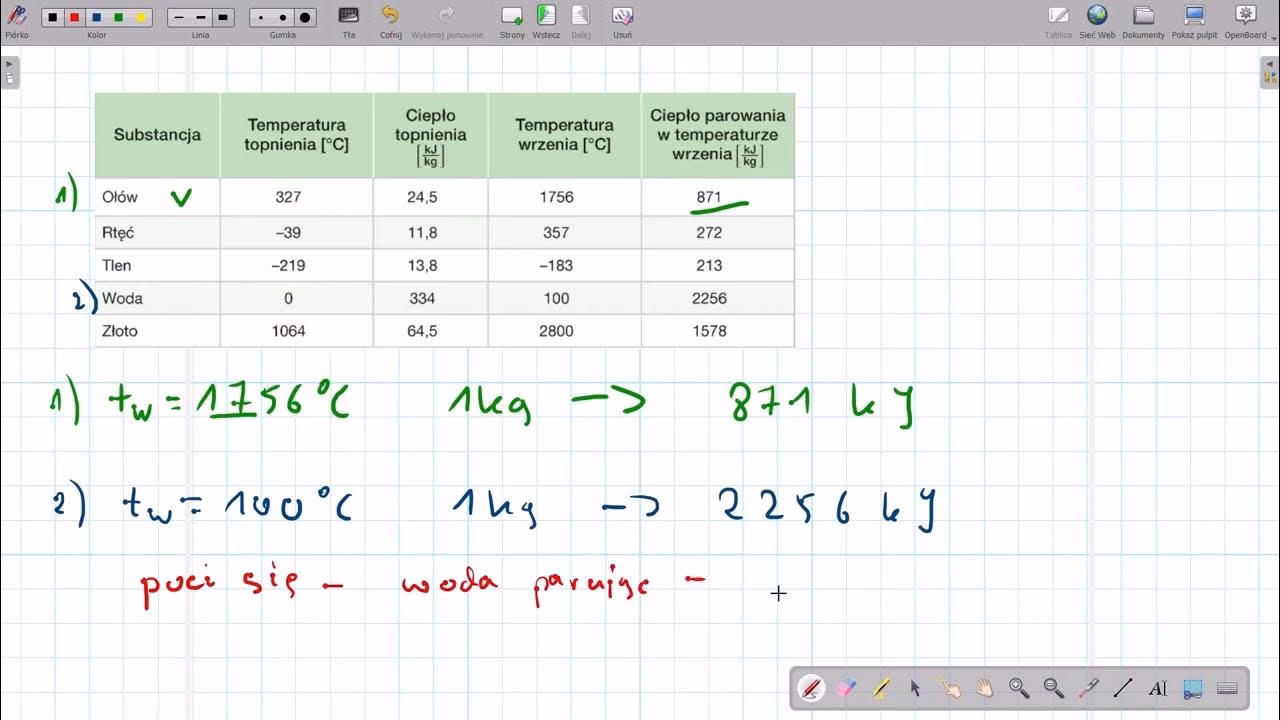 Piórko Kolor Linia Gumka Tła Cofnij Wykonaj ponownie Strony Wstecz Dalej Usuń Tablica Sieć Web Dokumenty Pokaż pulpit OpenBoard
Substancja Temperatura topnienia [°C] Ciepło topnienia [kJ/kg] Temperatura wrzenia [°C] Ciepło parowania w temperaturze wrzenia [kJ/kg]
1) Ołów V 327 24,5 1756 871
Rtęć –39 11,8 357 272
Tlen –219 13,8 –183 213
2) Woda 0 334 100 2256
Złoto 1064 64,5 2800 1578
1) tw = 1756°C 1kg → 871 kJ
2) tw = 100°C 1kg → 2256 kJ
poci się – woda parując –
AI